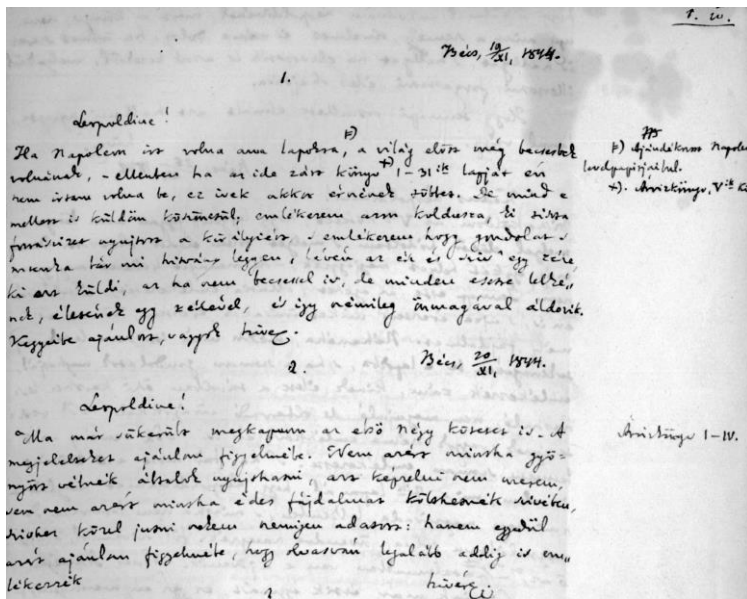 1. iv.
Bécs, 19/XI, 1844.
1.
Leopoldine!
Ha Napoleon írt volna ama lapokra, a világ előtt még becsesbek
volnának, - ellenben ha az ide zárt könyv 1-31ik lapját én
nem írtam volna be, ez ívek akkor érnének többet. De mind e
mellett is küldöm köszönetül, emlékezem arra koldusra, ki tiszta
forrásvizet nyujtott a királynak, s emlékezem hogy gondolat s
munka bár mi hitvány legyen, lévén az ész és sziv egy része
ki azt küldi, az ha nem becsessel is, de minden esetre lelké-
nek, életének egy részével, és így némileg önmagával áldozik.
Kegyeibe ajánlott, vagyok híve
+) Ajándékozott Napoleon
levélpapirjaibul.
+). Árvizkönyv, Vik
2.
Bécs, 20/XI, 1844.
Leopoldine!
Ma már sikerült megkapnom az első négy kötetet is. A
megjelelteket ajánlom figyelmébe. Nem azért mintha gyö-
nyört vélnék általok nyujthatni, azt képzelni nem merem,
sem nem azért mintha édes fájdalmat költhetnék szivében,
mihez közel jutni nekem nem adatott: hanem egyedül
azért ajánlom figyelmébe, hogy olvasván legalább addig is em-
lékezzék
hívére
Árvizkönyv I-IV.